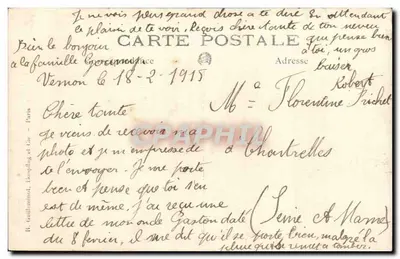 Je ne vois plus grand chose a te dire En attendant
le plaisir de te voir, reçois chère tante de ton neveu
qui pense bien
à toi, un gros
baiser
Robert
Bien le bonjour
a la famille
CARTE POSTALE
Correspondance
Adresse
Vernon le 18-2-1915
Chère tante
je viens de recevoir ma
photo et je m'empresse de
te l'envoyer. Je me porte
bien et pense que toi s'en
est de même. J'ai reçu une
lettre de mon oncle Gaston daté
du 8 février, il me dit qu'il se porte bien, malgré la
pluie qui
Mme Florentine
à Chartrettes
(Seine et Marne)
Paris